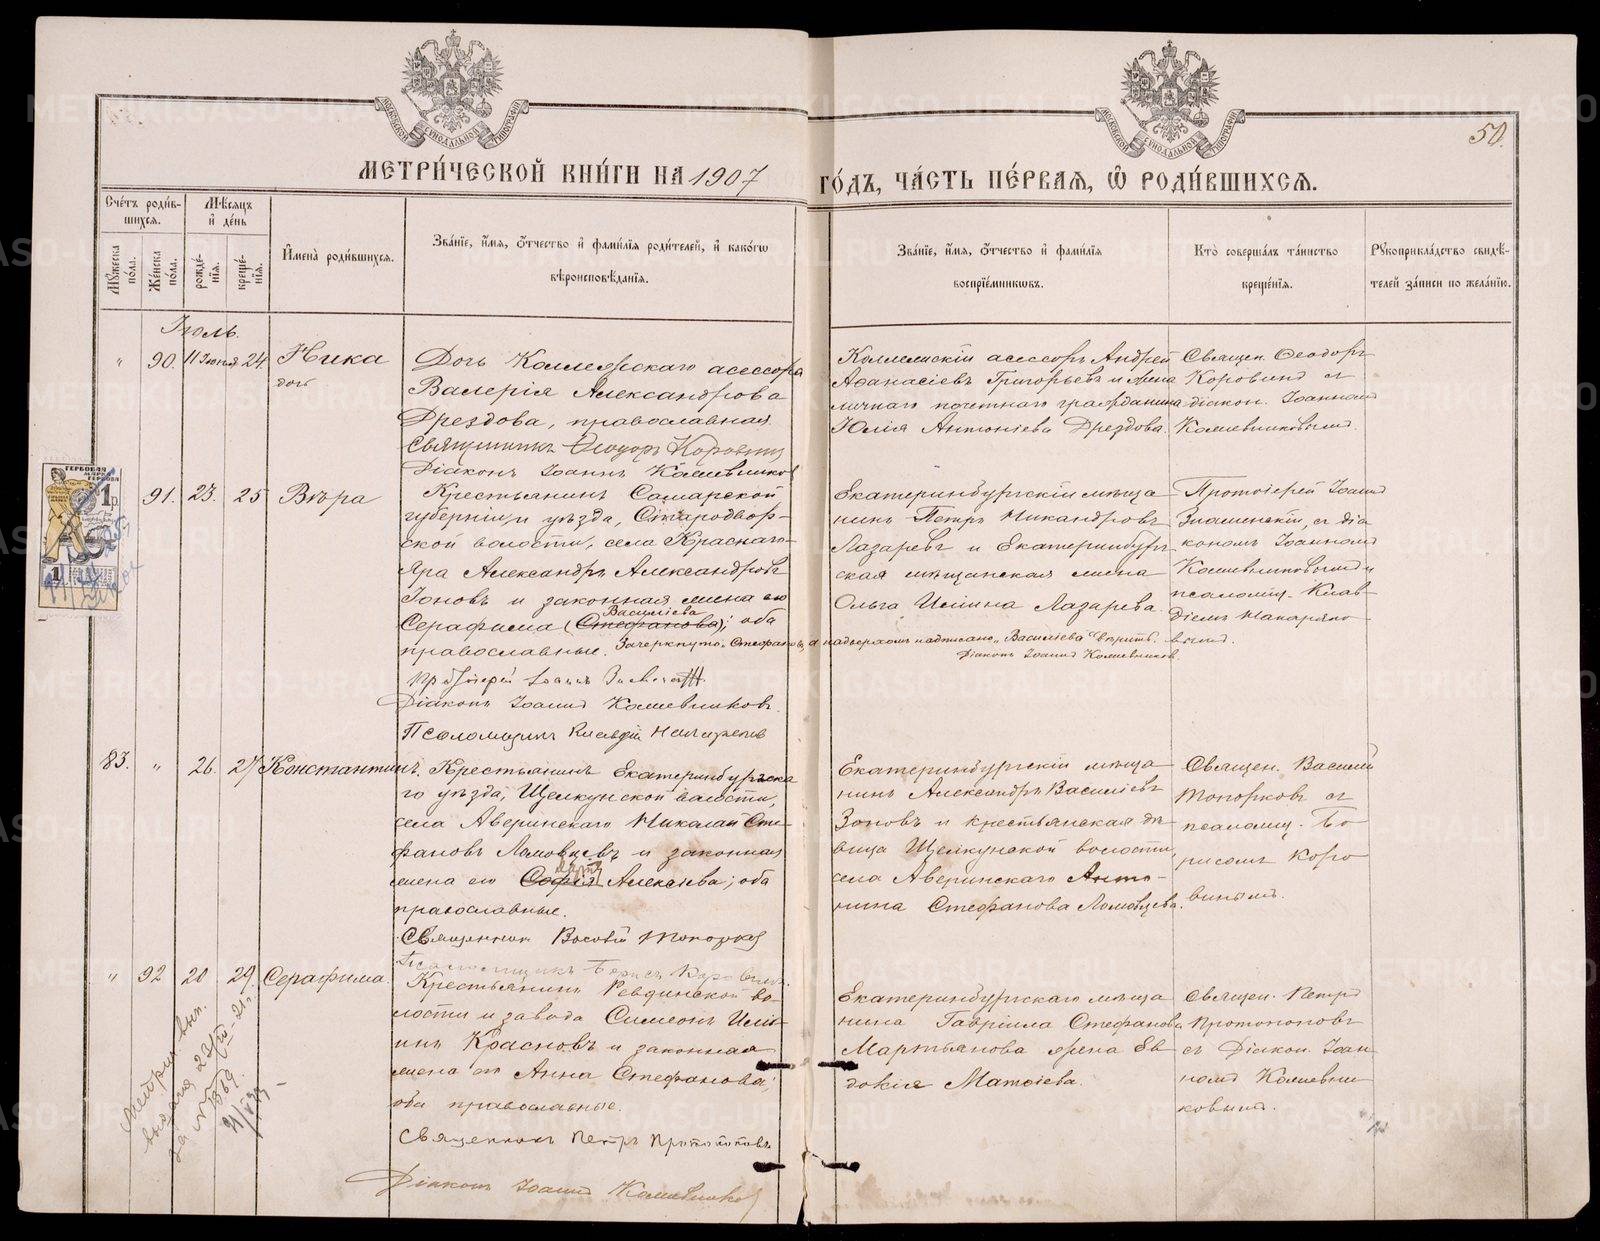 50.
МЕТРИ́ЧЕСКОЙ КНИ́ГИ НА 1907 ГО́ДЪ, ЧА́СТЬ ПЕ́РВАЯ, Ѡ РОДИ́ВШИХСЯ.
Сче́тъ роди́вшихся.
Мꙋжеска по́ла.
Же́нска по́ла.
Мѣсяцъ и де́нь
рожде́нїя.
креще́нїя.
Имена̀ роди́вшихся.
Зва́нїе, и́мя, о́тчество и фами́лїя роди́телей, и како́гѡ
вѣроисповѣ́данїя.
Зва́нїе, и́мя, о́тчество и фами́лїя
воспрїе́мникѡвъ.
Кто̀ соверша́лъ та́инство
креще́нїя.
Рꙋкоприкла́дство свидѣ́телей за́писи по жела́нїю.
Іюль.
" 90. 11 Іюня 24. Ника
дочь
Дочь Коллежскаго асессора
Валерія Александрова
Дрездова, православная
Священникъ Ѳеодоръ Коровинъ
Діаконъ Іоаннъ Кашевниковъ
Коллежскій асессоръ Андрей
Аѳанасіевъ Григорьевъ и жена
личнаго почетнаго гражданина
Юлія Антоніева Дрездова.
Священ. Ѳеодоръ
Коровинъ съ
діакон. Іоанномъ
Кашевниковымъ.
91. 23. 25 Вѣра
Крестьянинъ Самарской
губерніи и уѣзда, Стародвор-
ской волости, села Краснаго-
Яра Александръ Александровъ
Іоновъ и законная жена его
Василіева
Серафима (Стефанова); оба
православные. Зачеркнуто „Стефанова, а надверхомъ надписано „Василіева" вѣрить.
Діаконъ Іоаннъ Кашевниковъ.
Протоіерей Іоаннъ Знаменскій
Діаконъ Іоаннъ Кашевниковъ.
Псаломщикъ Клавдій
Екатеринбургскій мѣща
нинъ Петръ Никандровъ
Лазаревъ и Екатеринбург
ская мѣщанская жена
Ольга Иліина Лазарева.
Протоіерей Іоаннъ
Знаменскій, съ діа
кономъ Іоанномъ
Кашевниковымъ и
псаломщ. Клав
діемъ Макаряно
вымъ.
83. " 26. 27 Константинъ.
Крестьянинъ Екатеринбургска
го уѣзда, Щелкунской волости,
села Аверинскаго Николай Сте
фановъ Ломовцевъ и законная
жена его Софія Алексѣева; оба
православные.
Священник Василій Топорков
Псаломщикъ Борисъ Коровинъ.
Екатеринбургскій мѣща
нинъ Александръ Василіевъ
Зоновъ и крестьянская дѣ
вица Щелкунской волости,
села Аверинскаго Анто-
нина Стефанова Ломовцева.
Священ. Василій
Топорковъ съ
псаломщ. Бо
рисомъ Коро
винымъ.
" 92 20 29. Серафима.
Крестьянинъ Ревдинской во-
лости и завода Симеонъ Иліи-
инъ Красновъ и законная
жена его Анна Стефанова;
оба православные.
Священникъ Петръ Протопоповъ
Діаконъ Іоаннъ Кашевников
Екатеринбургскаго мѣща
нина Гавріила Стефанова
Мартьянова жена Ев
докія Матѳіева.
Священ. Петръ
Протопоповъ
съ Діакон. Іоан
номъ Кашевни
ковымъ.
Метрика вып.
выдана
за №
ГЕРБОВАЯ
МАРКА
1 р
1